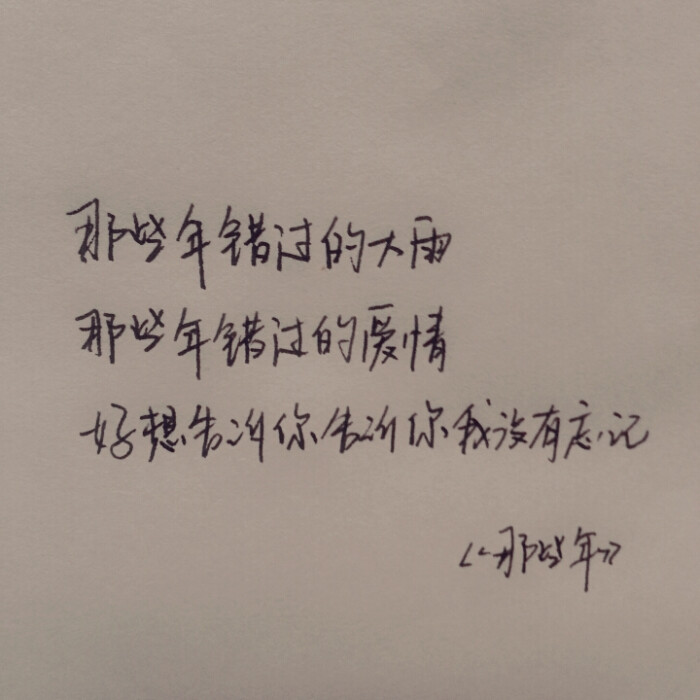 那些年错过的大雨
那些年错过的爱情
好想告诉你告诉你我没有忘记
《那些年》